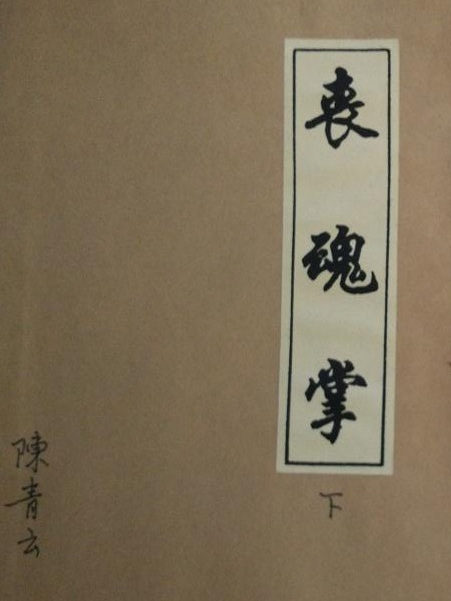 喪魂掌
下
陳青云